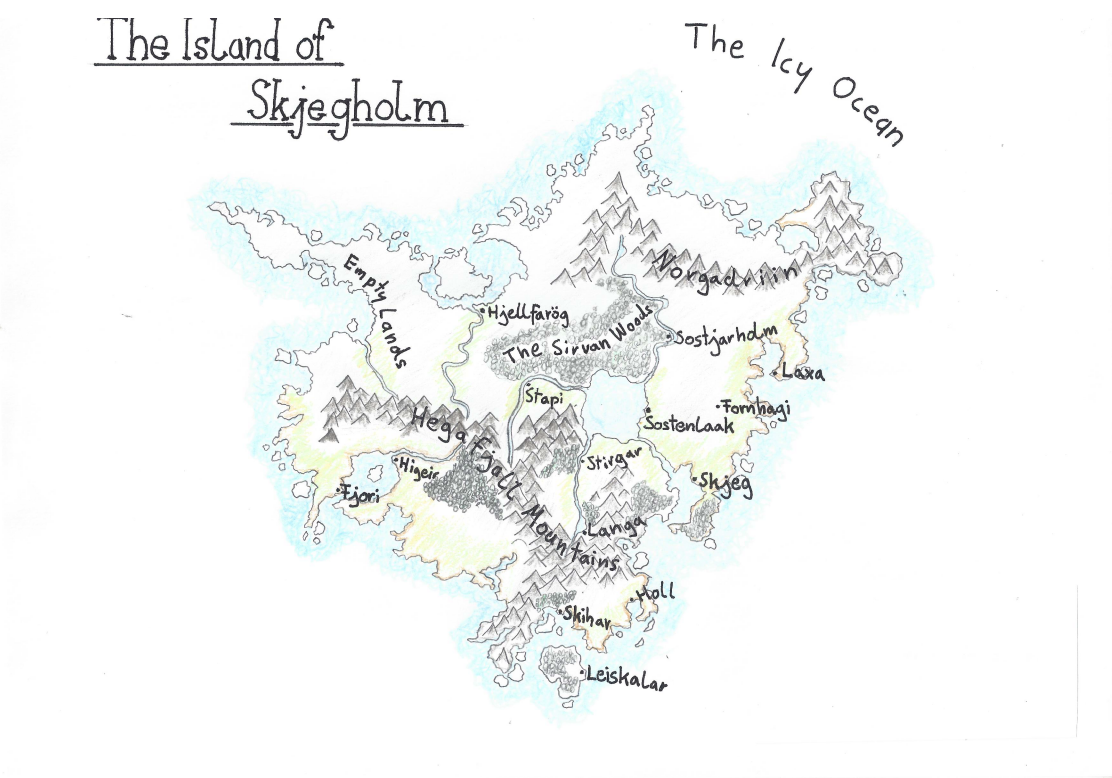 The Island of
Skjegholm
The Icy Ocean
Empty Lands
Norgadriin
Hjellfarög
The Sirvan Woods
Sostjarholm
Laxa
Stapi
Fornhagi
Hegafjall Mountains
Sostenlaak
Higeir
Stirgar
Skjeg
Fjori
Langa
Holl
Skihar
Leiskalar